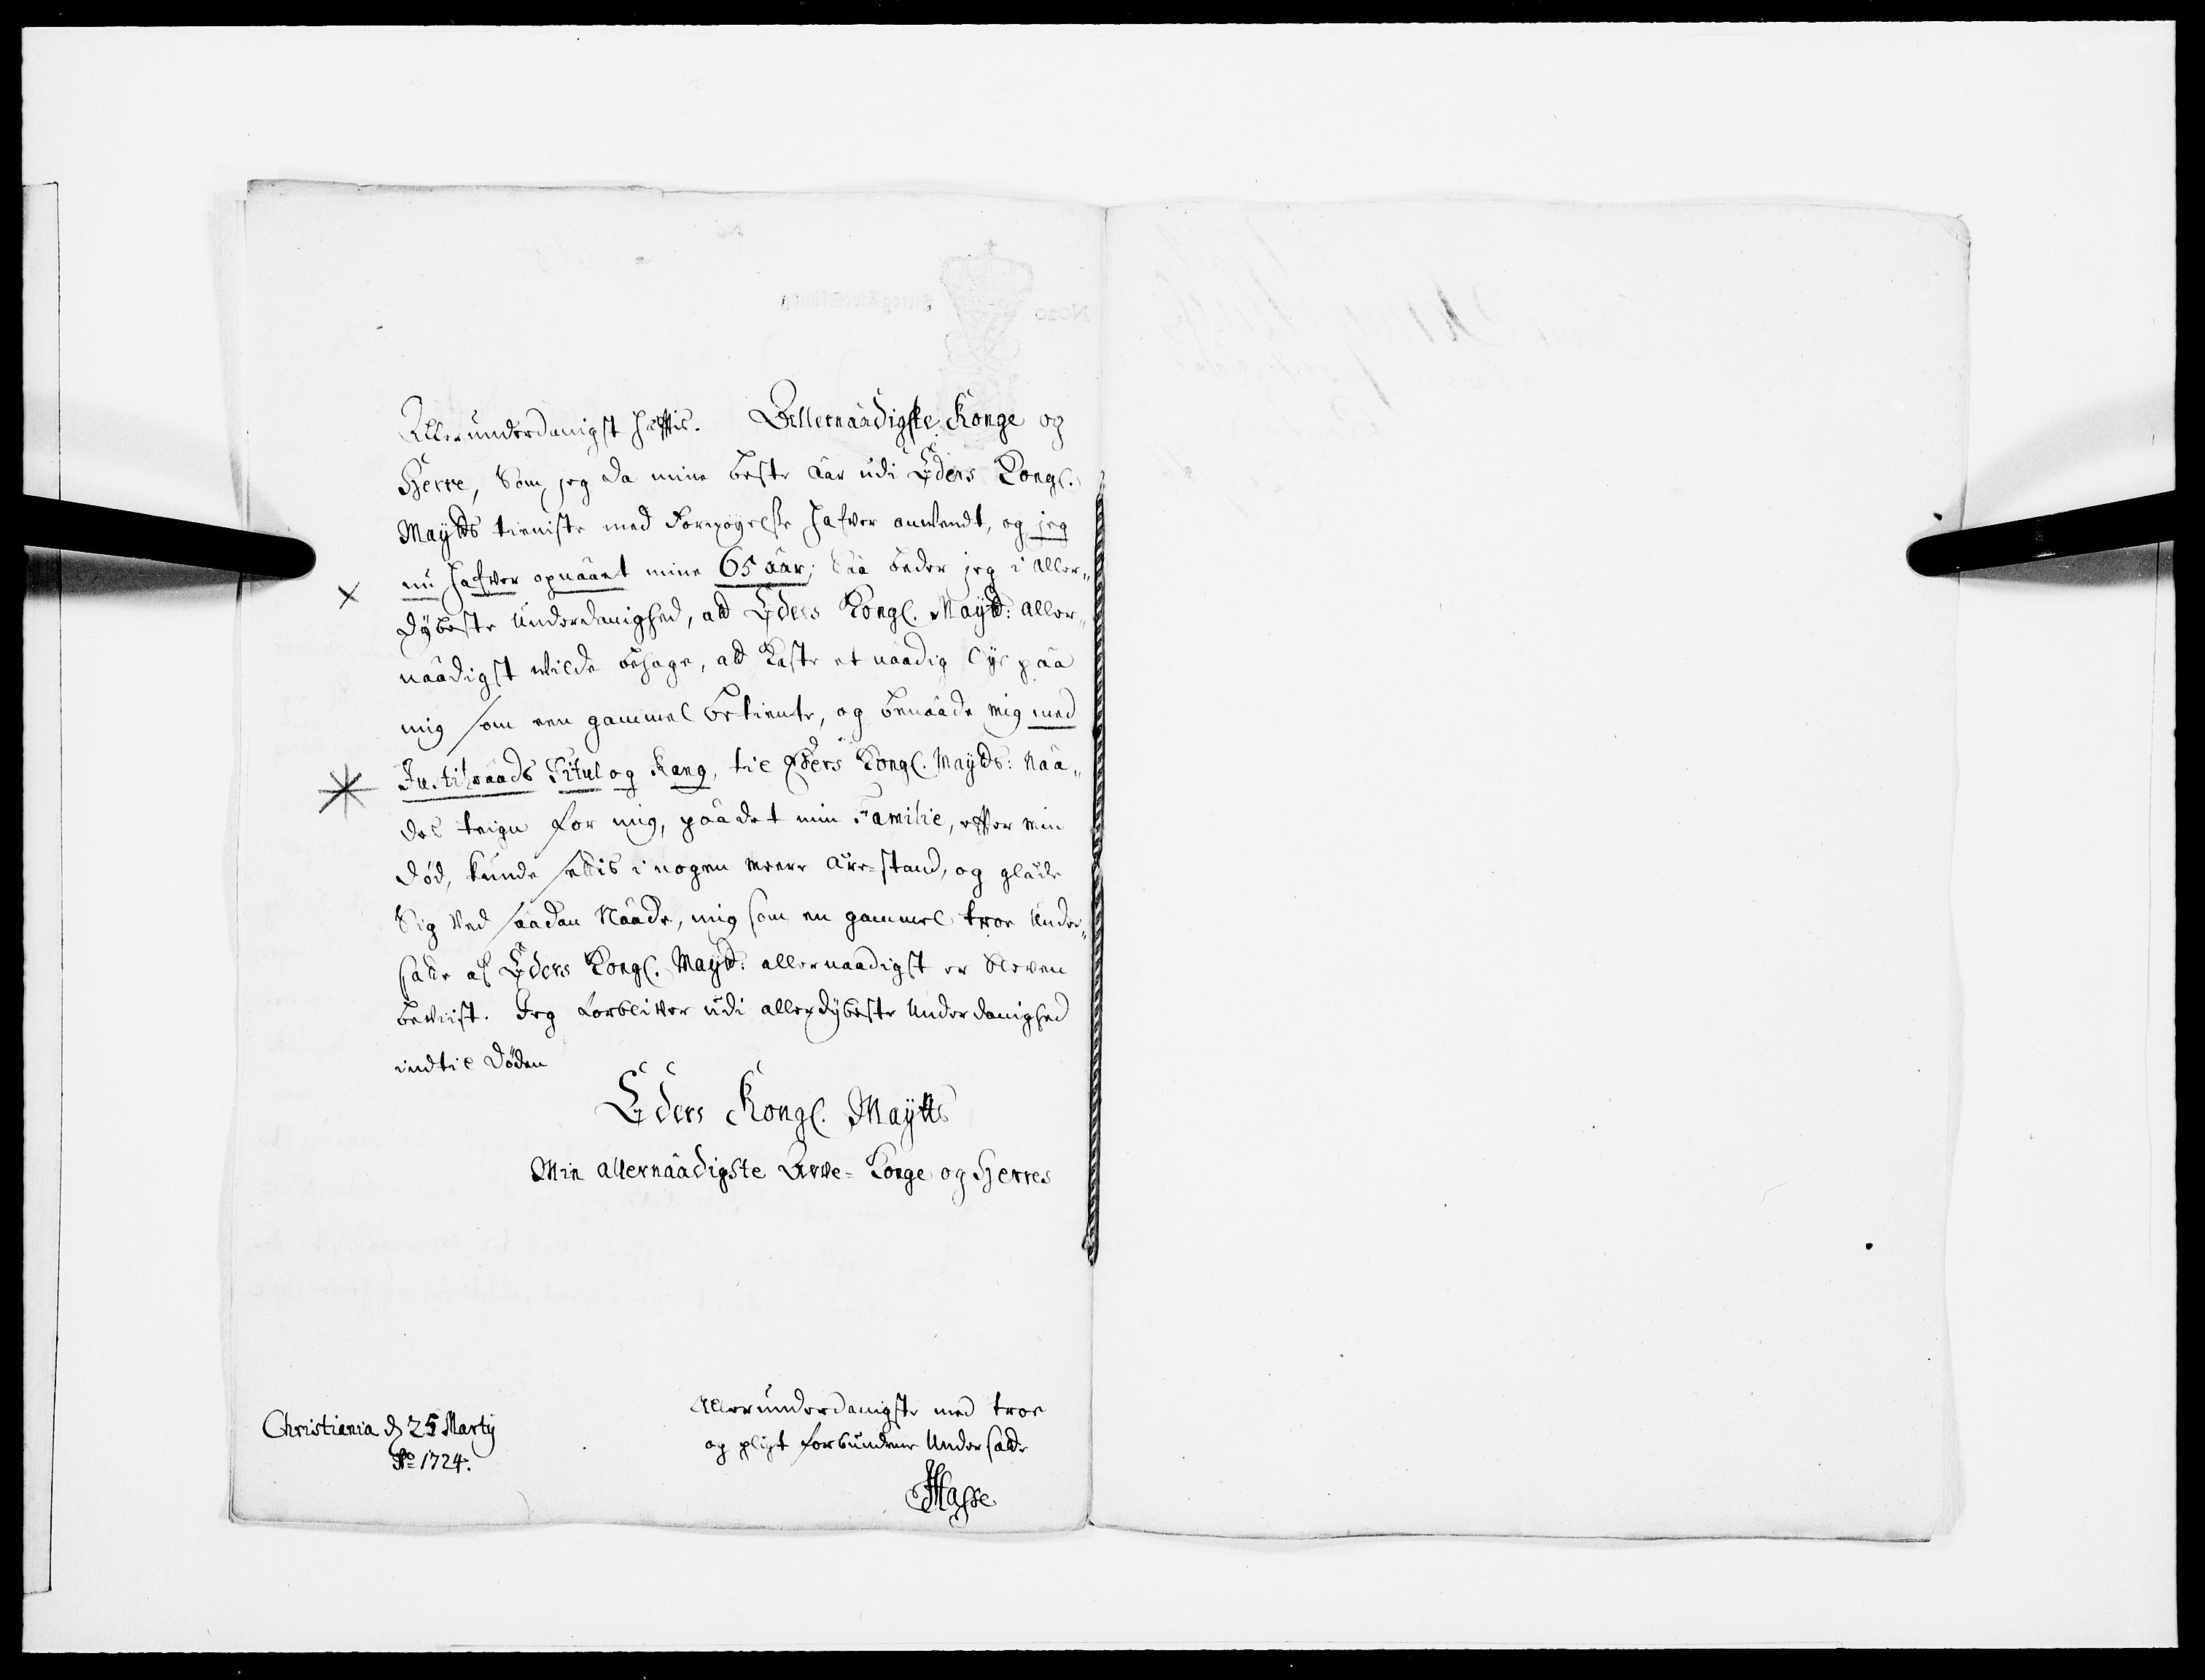 Allerunderdanigst haffis. Allernaadigste Konge og
Herre, Som jeg da mine beste aar udi Eders Kongl.
Maÿtts tieniste med Fornøyelsse hafver anvendt, og jeg
nu hafver opnaaet mine 65 aar; Saa beder jeg i aller-
dÿbeste Underdanighed, att Eders Kongl. Maÿtt: aller-
naadigst wilde behage, att kaste et naadig Øye paa
mig som een gammel betiente, og benaade mig med
Justitzraads Titul og Rang, til Eders Kongl. Maÿtts: Naa-
des teign for mig, paa det min Familie, effter min
død, kunde settis i nogen meere Ære-stand, og glæde
Sig ved saadan Naade, mig som en gammel troe Under-
satte af Eders Kongl. Maÿtt: allernaadigst er bleven
beviist. Jeg forbliver udi allerdÿbeste Underdanighed
indtil Døden
Eders Kongl. Maÿtts
Min allernaadigste Arve-Konge og Herres
Allerunderdanigste med troe
og pligt forbundene Undersatte
Christiania d 25 Martij
Ao 1724.
Hasse